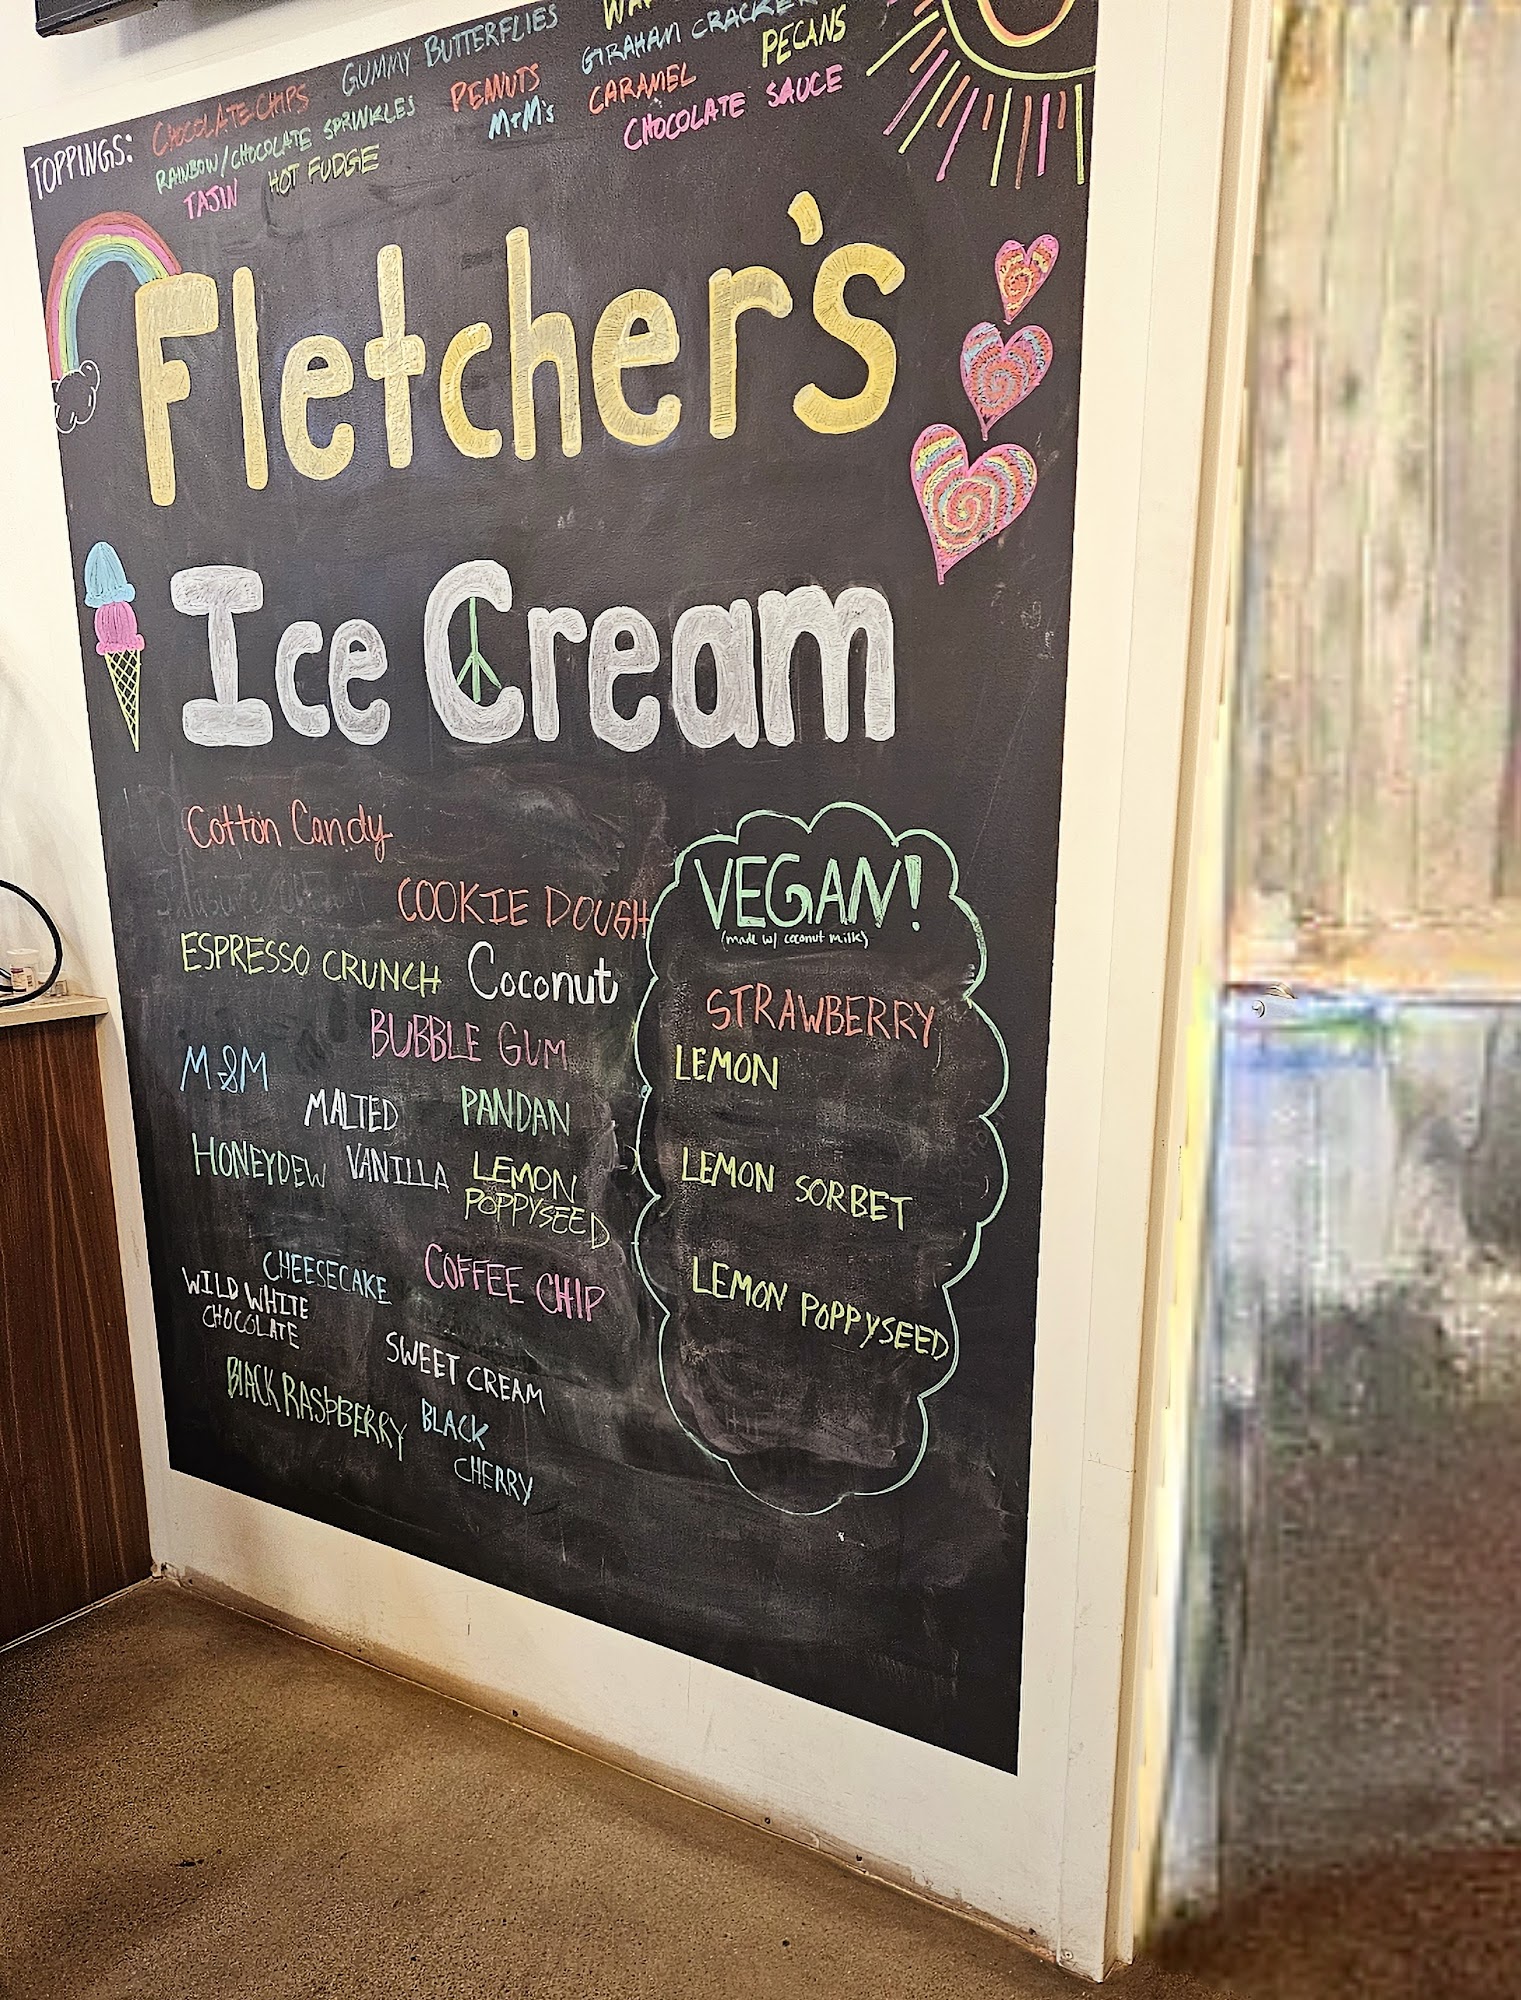 GUMMY BUTTERFLIES
TOPPINGS: CHOCOLATE CHIPS PEANUTS GRAHAM CRACKER PECANS
RAINBOW/CHOCOLATE SPRINKLES M+M's CARAMEL
TAJIN HOT FUDGE CHOCOLATE SAUCE
Fletcher's
Ice Cream
Cotton Candy
COOKIE DOUGH
ESPRESSO CRUNCH Coconut
BUBBLE GUM
M&M
MALTED PANDAN
HONEYDEW VANILLA LEMON
POPPYSEED
CHEESECAKE COFFEE CHIP
WILD WHITE
CHOCOLATE
SWEET CREAM
BLACK RASPBERRY BLACK
CHERRY
VEGAN!
(made w/ coconut milk)
STRAWBERRY
LEMON
LEMON SORBET
LEMON POPPYSEED